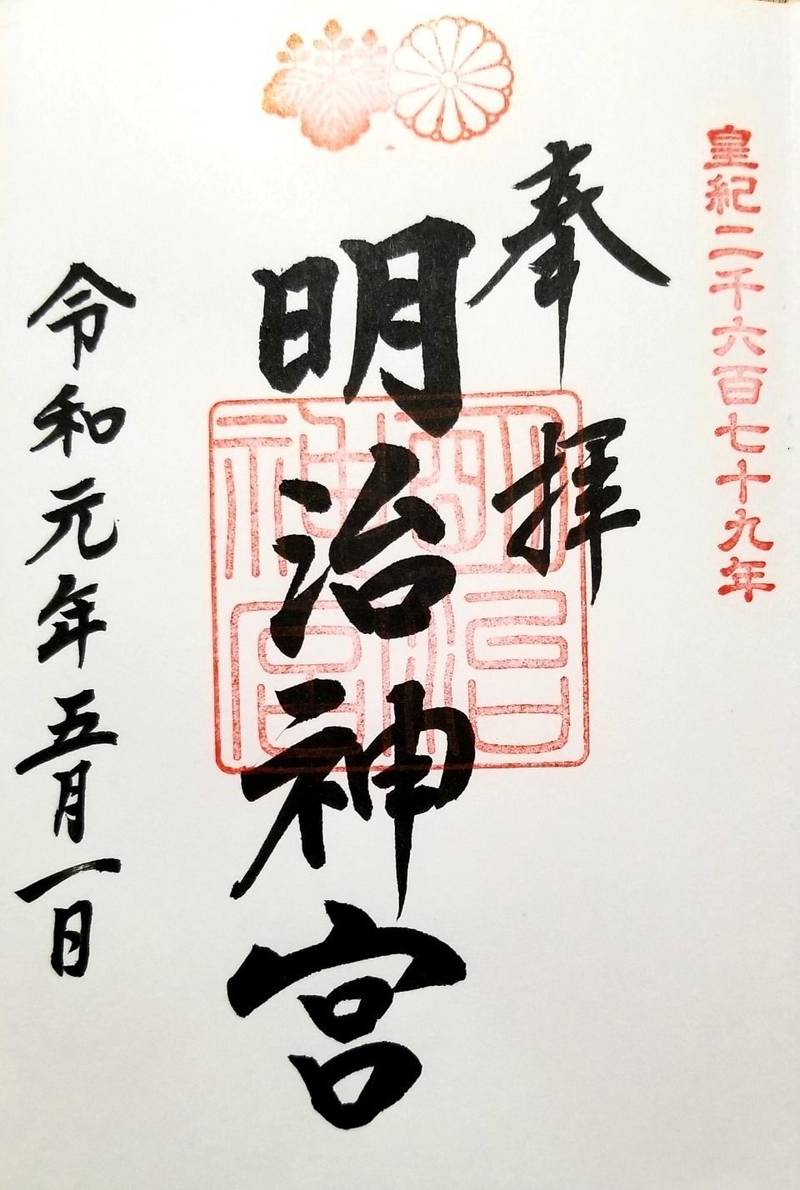 皇紀二千六百七十九年
奉拝
明治神宮
明治
神宮
令和元年五月一日